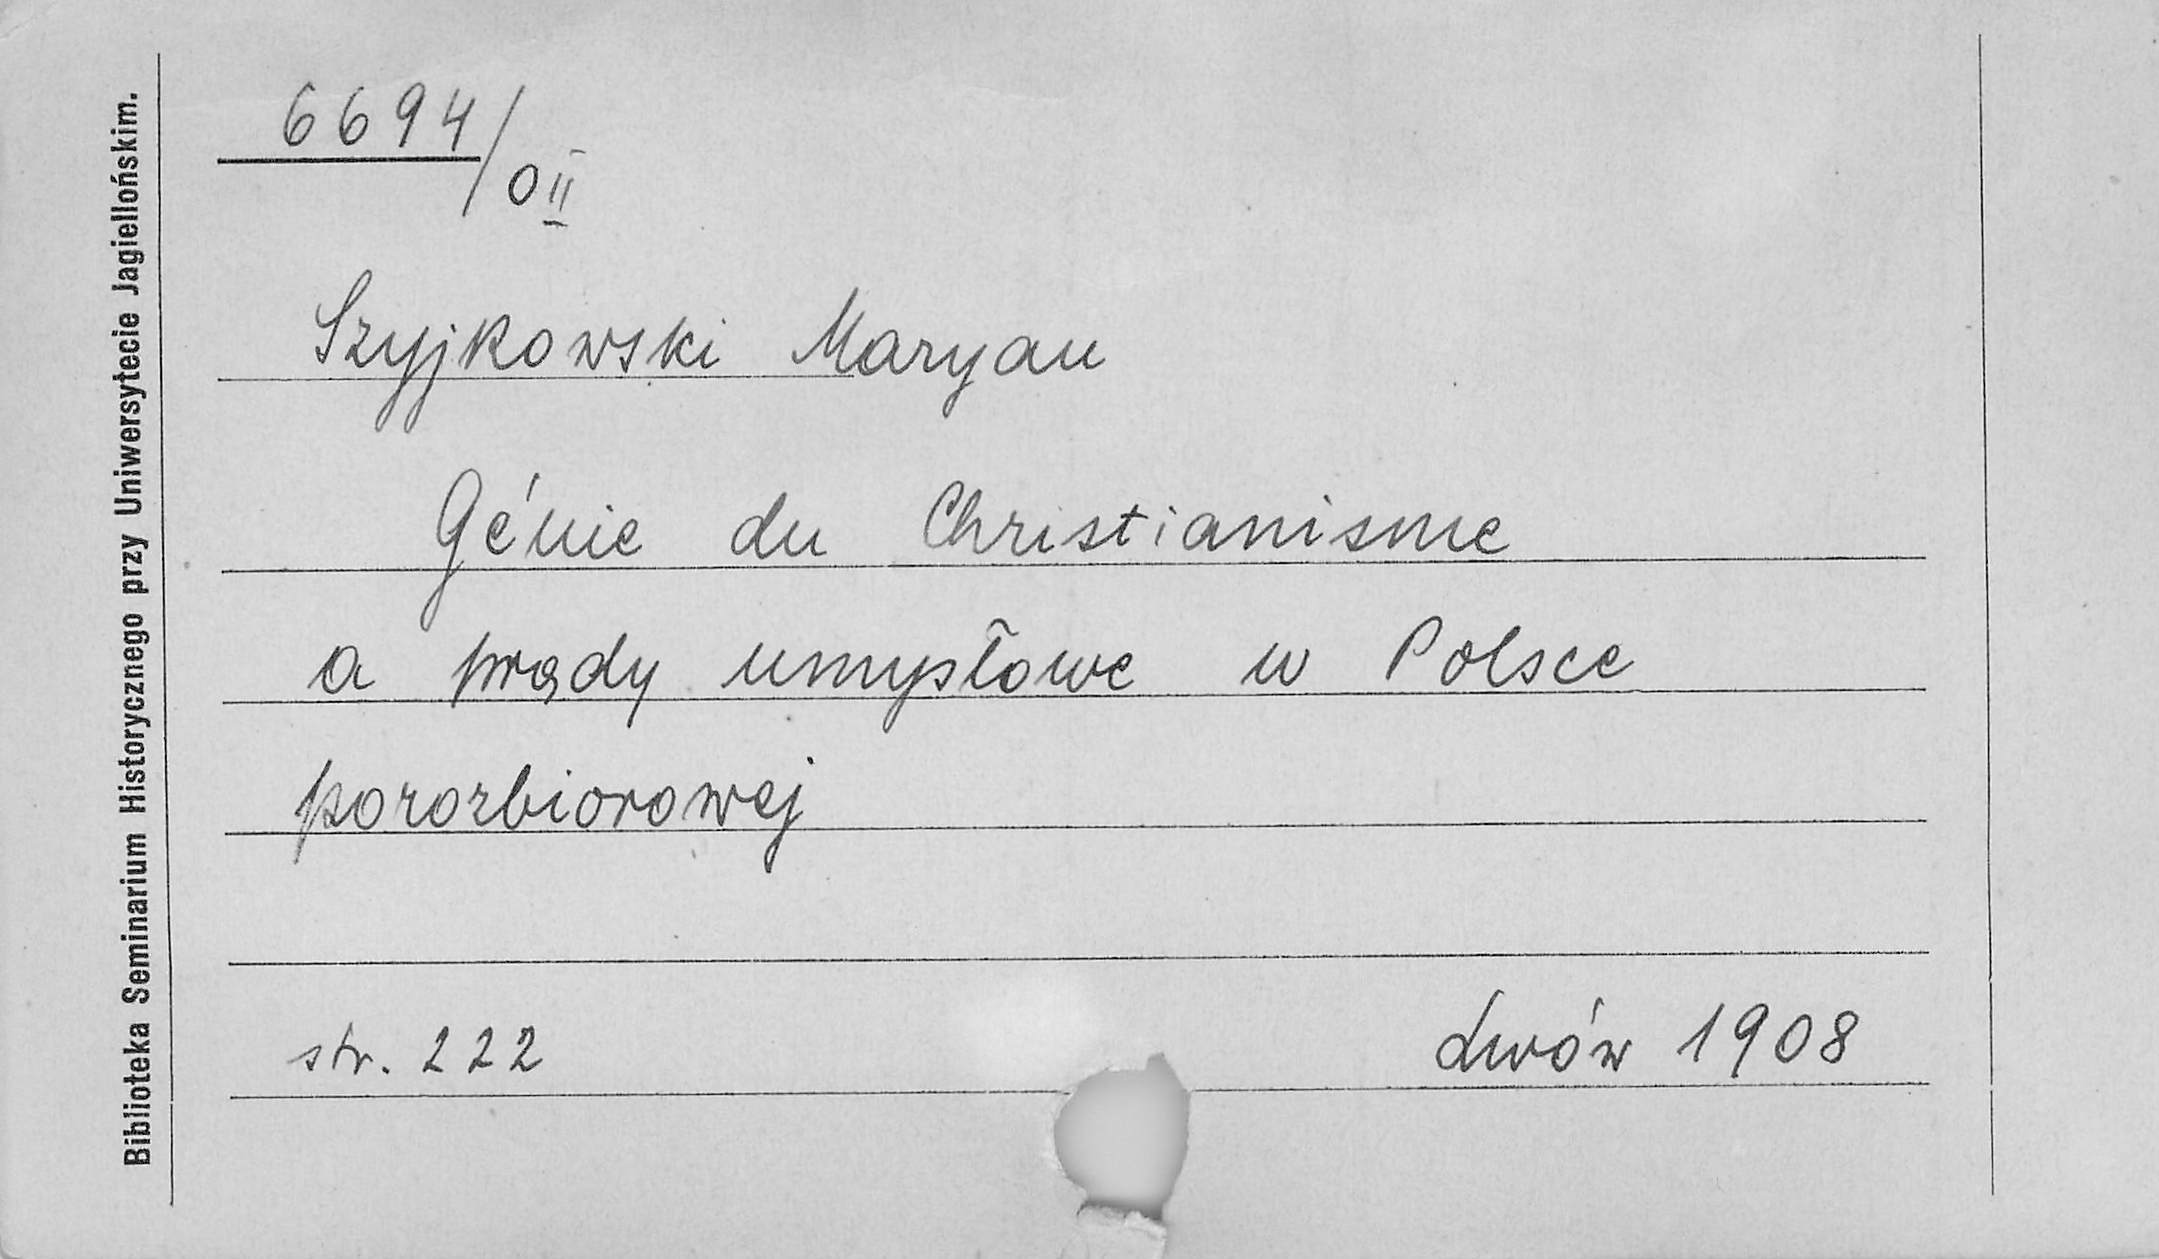 Biblioteka Seminarium Historycznego przy Uniwersytecie Jagiellońskim.
6694/OII
Szyjkowski Maryan
Génie du Christianisme
a prądy umysłowe w Polsce
porozbiorowej
str. 222 Lwów 1908